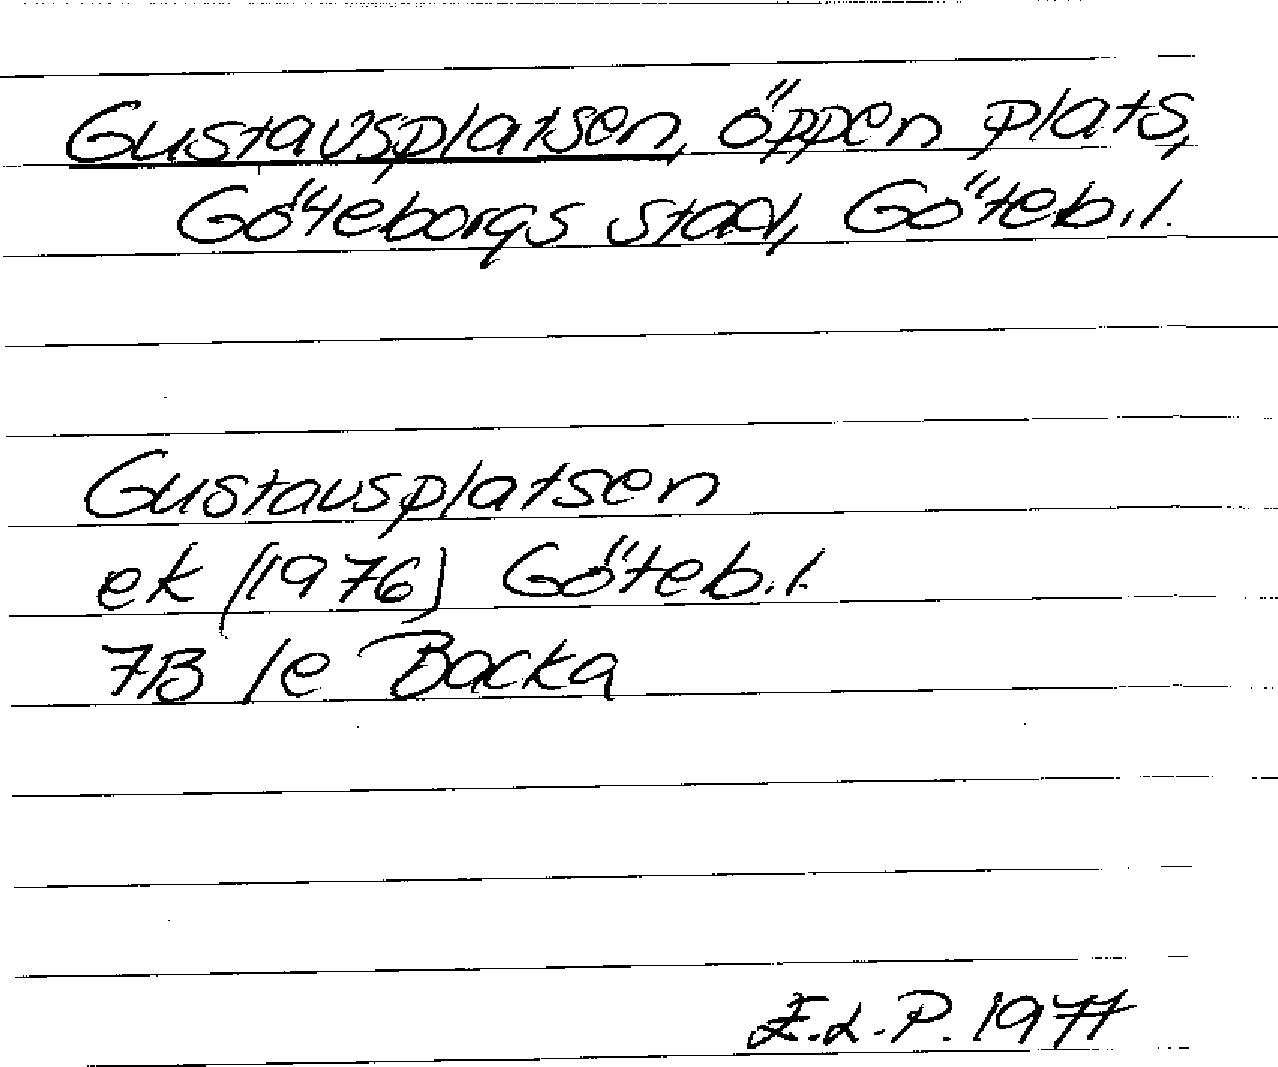 Gustavsplatsen, öppen plats,
Göteborgs stad, Göteb.l.
Gustavsplatsen
ek (1976) Göteb.l.
7B 1e Backa
E.L.P. 1977